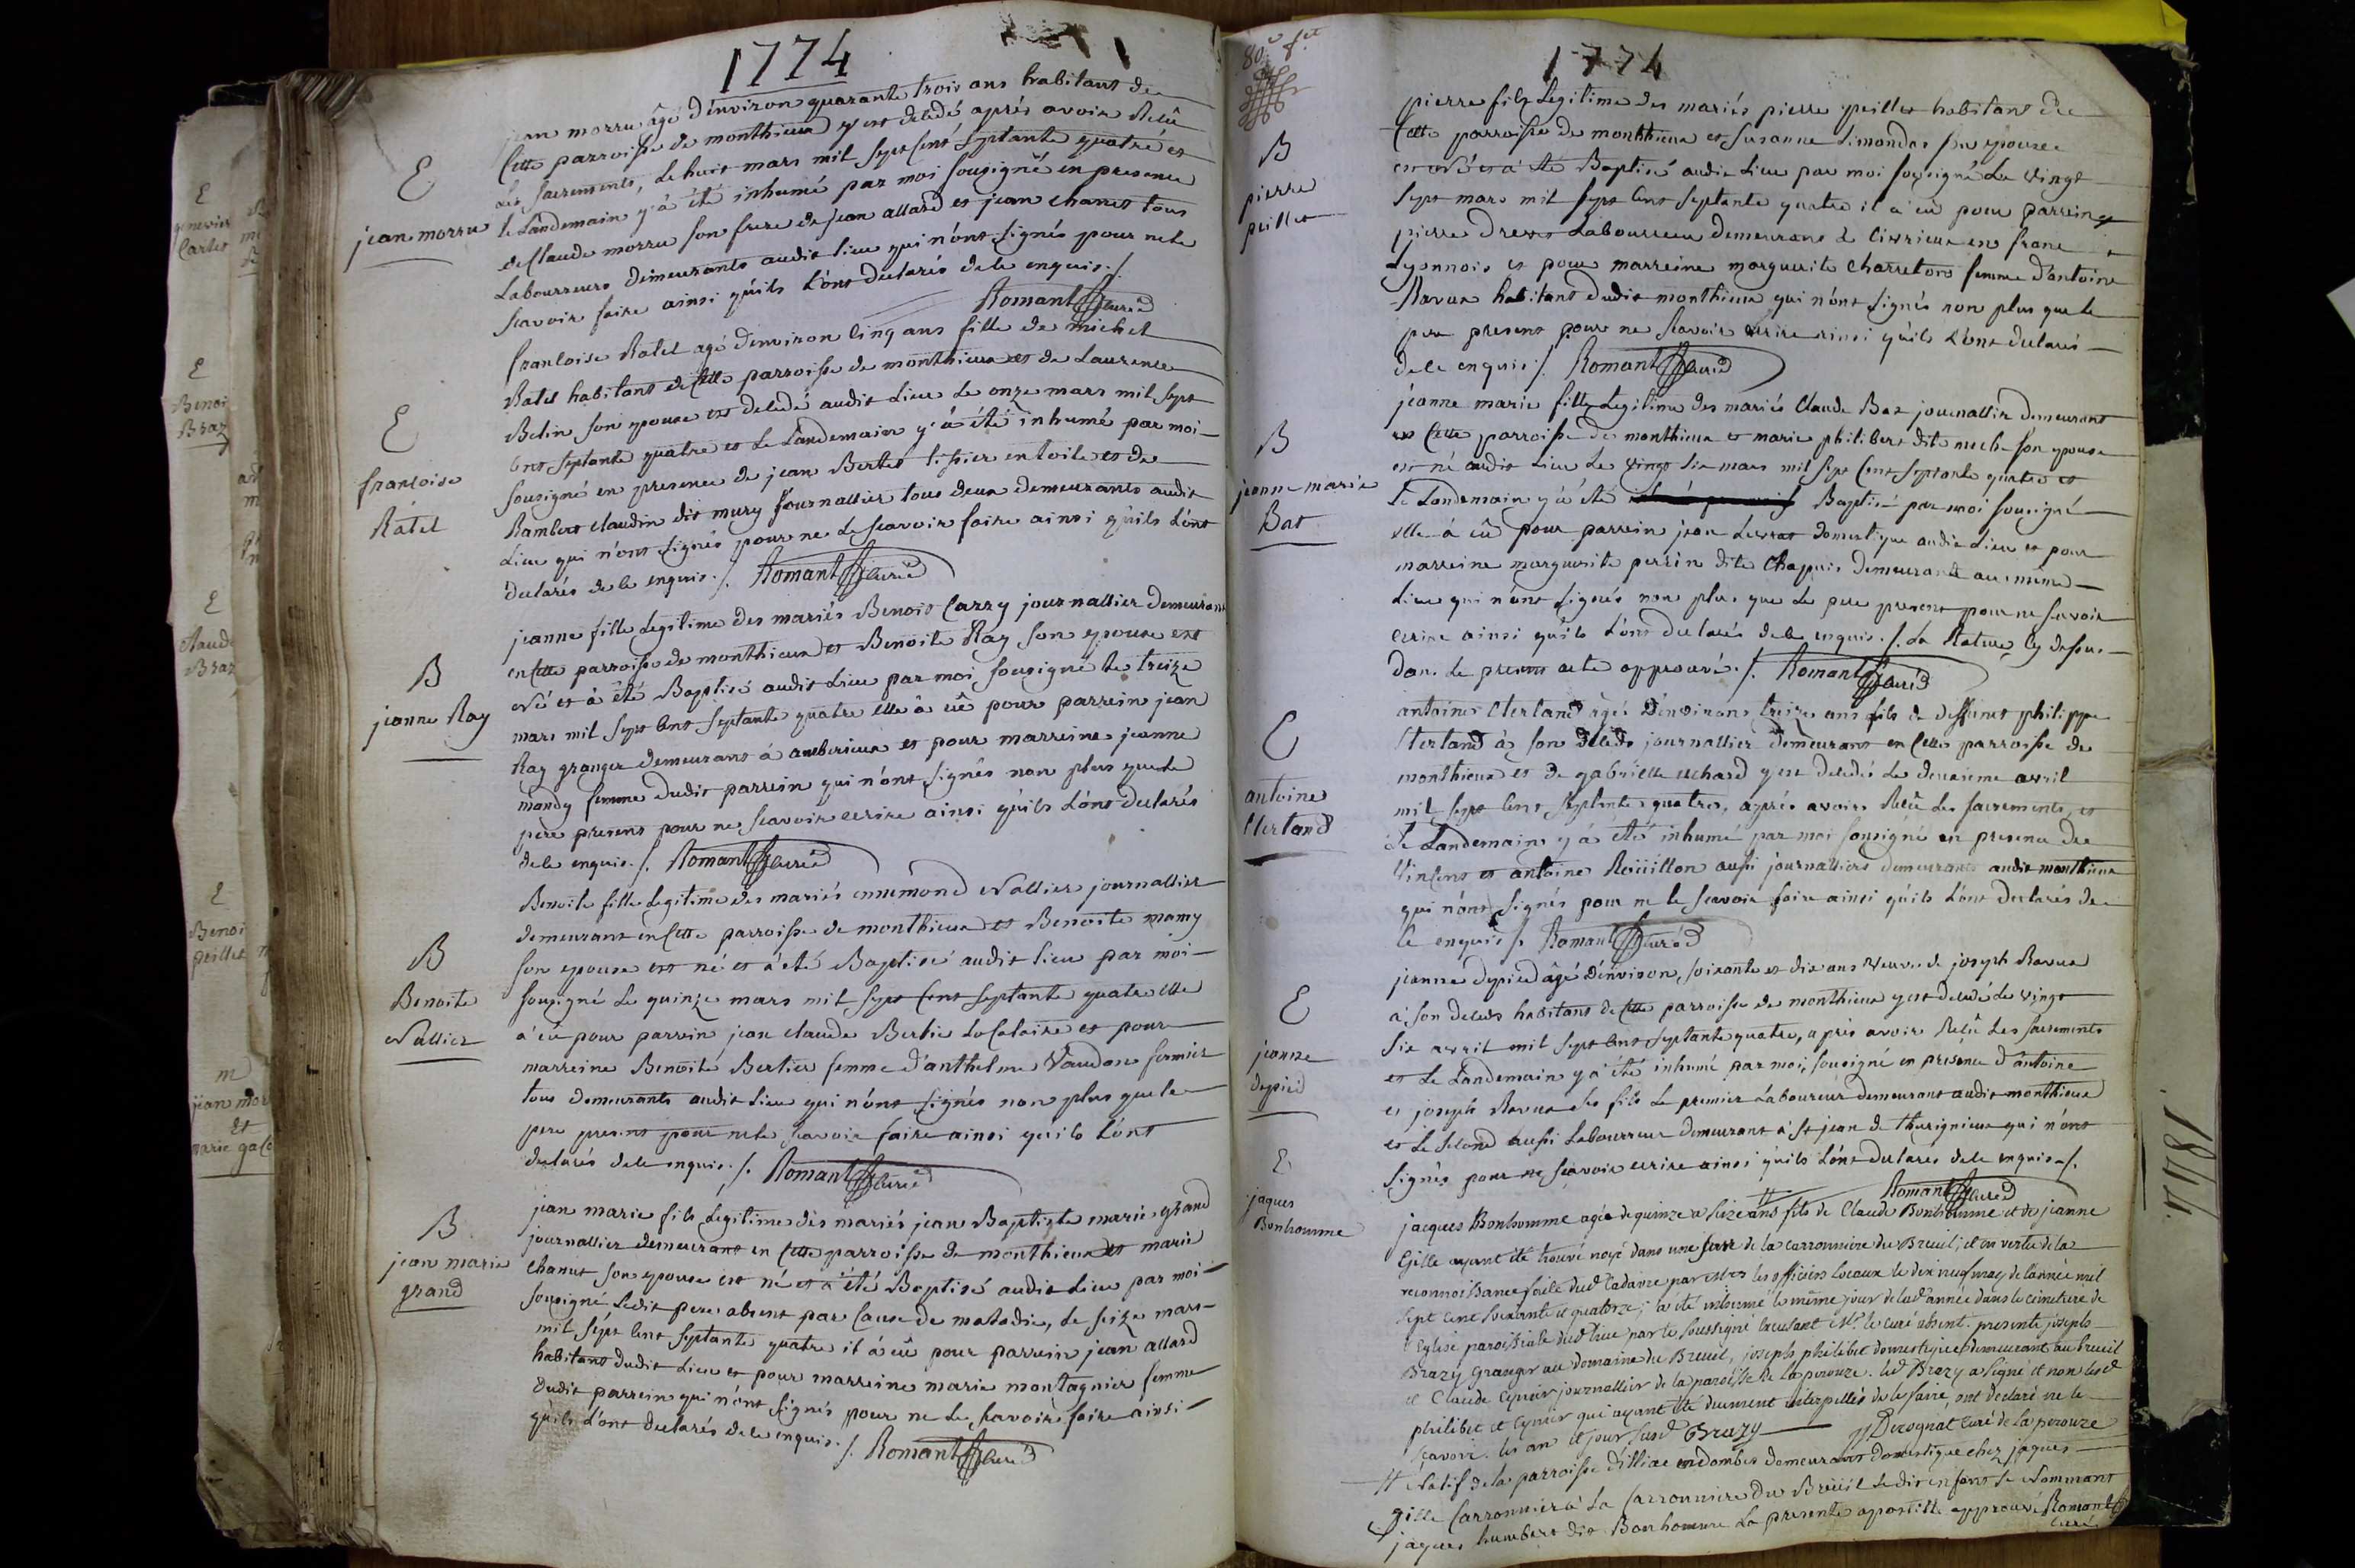 1774
jean morru âgé d'environ quarante trois ans habitant de
Cette parroisse de monthieux y est decedé aprés avoir Recû
Les sacrements, Le huit mars mil sept cent septante quatre et
le Landemain y à été inhumé par moi sousigné en presence
de Claude morru son frere de jean allard et jean chanet tous
Labourreurs demeurants audit Lieu qui n'ont signés pour ne le
scavoir faire ainsi quils L'ont declarés de le enquis ./.
Romant curé
E
jean morru
francoise Ratel agé d'environ cinq ans fille de michel
Ratel habitant de cette parroisse de monthieux et de Laurence
Belin son epouse est decedé audit Lieu Le onze mars mil sept
cent septante quatre et Le Landemain y à été inhumé par moi
sousigné en presence de jean Bertet tissier en toile et de
Rambert claudin dit mury journallier tous deux demeurants audit
Lieu qui n'ont signés pour ne Le scavoir faire ainsi quils L'ont
declarés de le enquis ./. Romant curé
E
francoise
Ratel
jeanne fille Legitime des mariés Benoit Carry journallier demeurant
en cette parroisse de monthieux et Benoite Ray son epouse est
Né et à été Baptisé audit Lieu par moi sousigné le treize
mars mil sept cent septante quatre elle à eû pour parrein jean
Ray granger demeurant à amberieux et pour marreine jeanne
mandy femme dudit parrein qui n'ont signés non plus que le
pere present pour ne scavoir ecrire ainsi quils L'ont declarés
de le enquis ./. Romant curé
B
jeanne Ray
Benoite fille Legitime des mariés ennemond Nallier journallier
demeurant en Cette parroisse de monthieux et Benoite mamy
son epouse est né et à été Baptisé audit lieu par moi
sousigné Le quinze mars mil sept Cent septante quatre elle
à eû pour parrein jean claude Bertie Locataire et pour
marreine Benoite Bertier femme d'anthelme Vaudan fermier
tous demeurants audit Lieu qui n'ont signés non plus que le
pere present pour ne le scavoir faire ainsi quils L'ont
declarés de le enquis ./. Romant curé
B
Benoite
Nallier
jean marie fils Legitime des mariés jean Baptiste marie grand
journallier demeurant en Cette parroisse de monthieux et marie
Chanut son epouse est né et à été Baptisé audit Lieu par moi
sousigné Ledit pere absent par Cause de maladie, Le seize mars
mil sept cent septante quatre il à eû pour parrein jean allard
habitant dudit Lieu et pour marreine marie montagnier femme
dudit parrein qui n'ont signés pour ne Le scavoir faire ainsi
quils L'ont declarés de le enquis ./. Romant curé
B
jean marie
grand
E
Benoi
Braz
E
Claude
Braz
E
Benoi
peillet
m
jean mor
et
marie gale
1774
80
pierre fils Legitime des mariés pierre peillet habitant de
Cette parroisse de monthieux et susanne Limondas son epouse
est Né et à été Baptisé audit Lieu par moi sousigné Le vingt
sept mars mil sept cent septante quatre il à eû pour parrein
pierre Drevet Labourreur demeurant à Civrieux en franc
Lyonnois et pour marreine marguerite Charreton femme d'antoine
Ravux habitant dudit monthieux qui n'ont signés non plus que le
pere present pour ne scavoir ecrire ainsi quils L'ont declarés
de le enquis ./. Romant curé
B
pierre
peillet
jeanne marie fille Legitime des mariés Claude Bas journallier demeurant
en Cette parroisse de monthieux et marie philibert dite son epouse
est né audit Lieu Le vingt six mars mil sept Cent septante quatre et
le Landemain y à été Baptisé par moi sousigné
elle à eû pour parrein jean domestique audit Lieu et pour
marreine marguerite perrin dite Chappuis demeurante au même
Lieu qui n'ont signés non plus que Le pere present pour ne scavoir
ecrire ainsi quils L'ont declarés de le enquis ./. La Rature cy dessus
dans Le present acte approuvé ./. Romant curé
B
jeanne marie
Bas
antoine Clerland âgé d'environ treize ans fils de deffunct philippe
Clerland à son décéds journallier demeurant en Cette parroisse de
monthieux et de gabrielle y est decedé Le deuxieme avril
mil sept cent septante quatre, aprés avoir Recû Les sacrements, et
Le Landemain y à été inhumé par moi sousigné en presence de
Vincent et antoine Roüillon aussi journalliers demeurants audit monthieux
qui n'ont signés pour ne le scavoir faire ainsi quils L'ont declarés de
le enquis ./. Romant curé
E
antoine
Clerland
jeanne depied âgé d'environ soixante et dix ans veuve de joseph Ravux
à son decéds habitant de Cette parroisse de monthieux y est decedé Le vingt
six avril mil sept cent septante quatre, aprés avoir Recû Les sacrements
et Le Landemain y à été inhumé par moi, sousigné en presence d'antoine
et joseph Ravux ses fils Le premier Laboureur demeurant audit monthieux
et Le second aussi Labourreur demeurant à St jean de thurignieux qui n'ont
signés pour ne scavoir ecrire ainsi quils L'ont declarés de le enquis ./.
Romant curé
E
jeanne
depied
jacques Bonhomme agée de quinze a seize ans # fils de Claude Bonhomme et de jeanne
Gille ayant été trouvé noyé dans une serve de la carronniere du Breuil; et en vertu de la
reconnoissance faite dud. Cadavre par les officiers locaux le dix neuf may de l'année mil
sept cent soixante et quatorze; a été inhumé le même jour de lad. année dans le cimetiere de
l'Eglise paroissiale dud. lieu par le soussigné l'absent Mr. le curé absent. presents joseph
Brazy Granger au domaine du Breuil, joseph philibet domestique demeurant au breuil
et Claude Cynier journallier de la paroisse de la perouze. led. Brazy a signé et non lesd.
philibet et Cynier qui ayant été duement interpellés de le faire, ont declaré ne le
scavoir. les an et jour susd. Brazy Derognat curé de la perouze
# Natif de la parroisse d'illiac en dombes demeurant domestique chez jaques
gille Carronnier à La Carronniere du Breüil Ledit enfant se Nommant
jaques humbert dit Bonhomme La presente apostille approuvé Romant curé
E
jaques
Bonhomme
1844